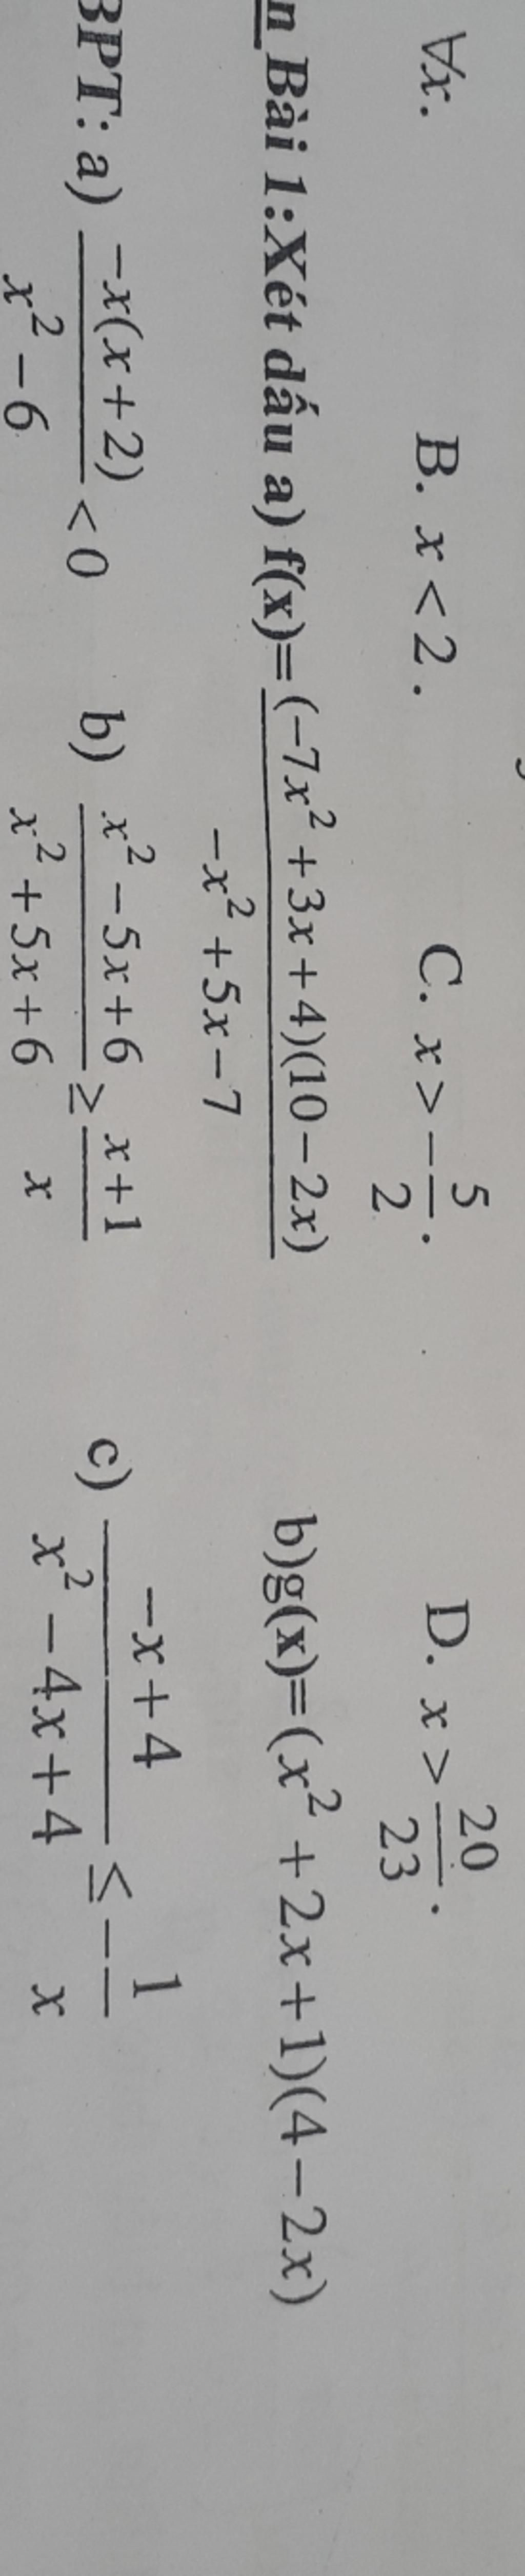 ∀x. B. x < 2 . C. x > −5/2 . D. x > 20/23 .
n Bài 1:Xét dấu a) f(x)= (−7x² + 3x + 4)(10 − 2x) / −x² + 5x − 7 b)g(x)=(x² + 2x + 1)(4 − 2x)
BPT: a) −x(x + 2) / x² − 6 < 0 b) x² − 5x + 6 / x² + 5x + 6 ≥ x + 1 / x c) −x + 4 / x² − 4x + 4 ≤ −1/x